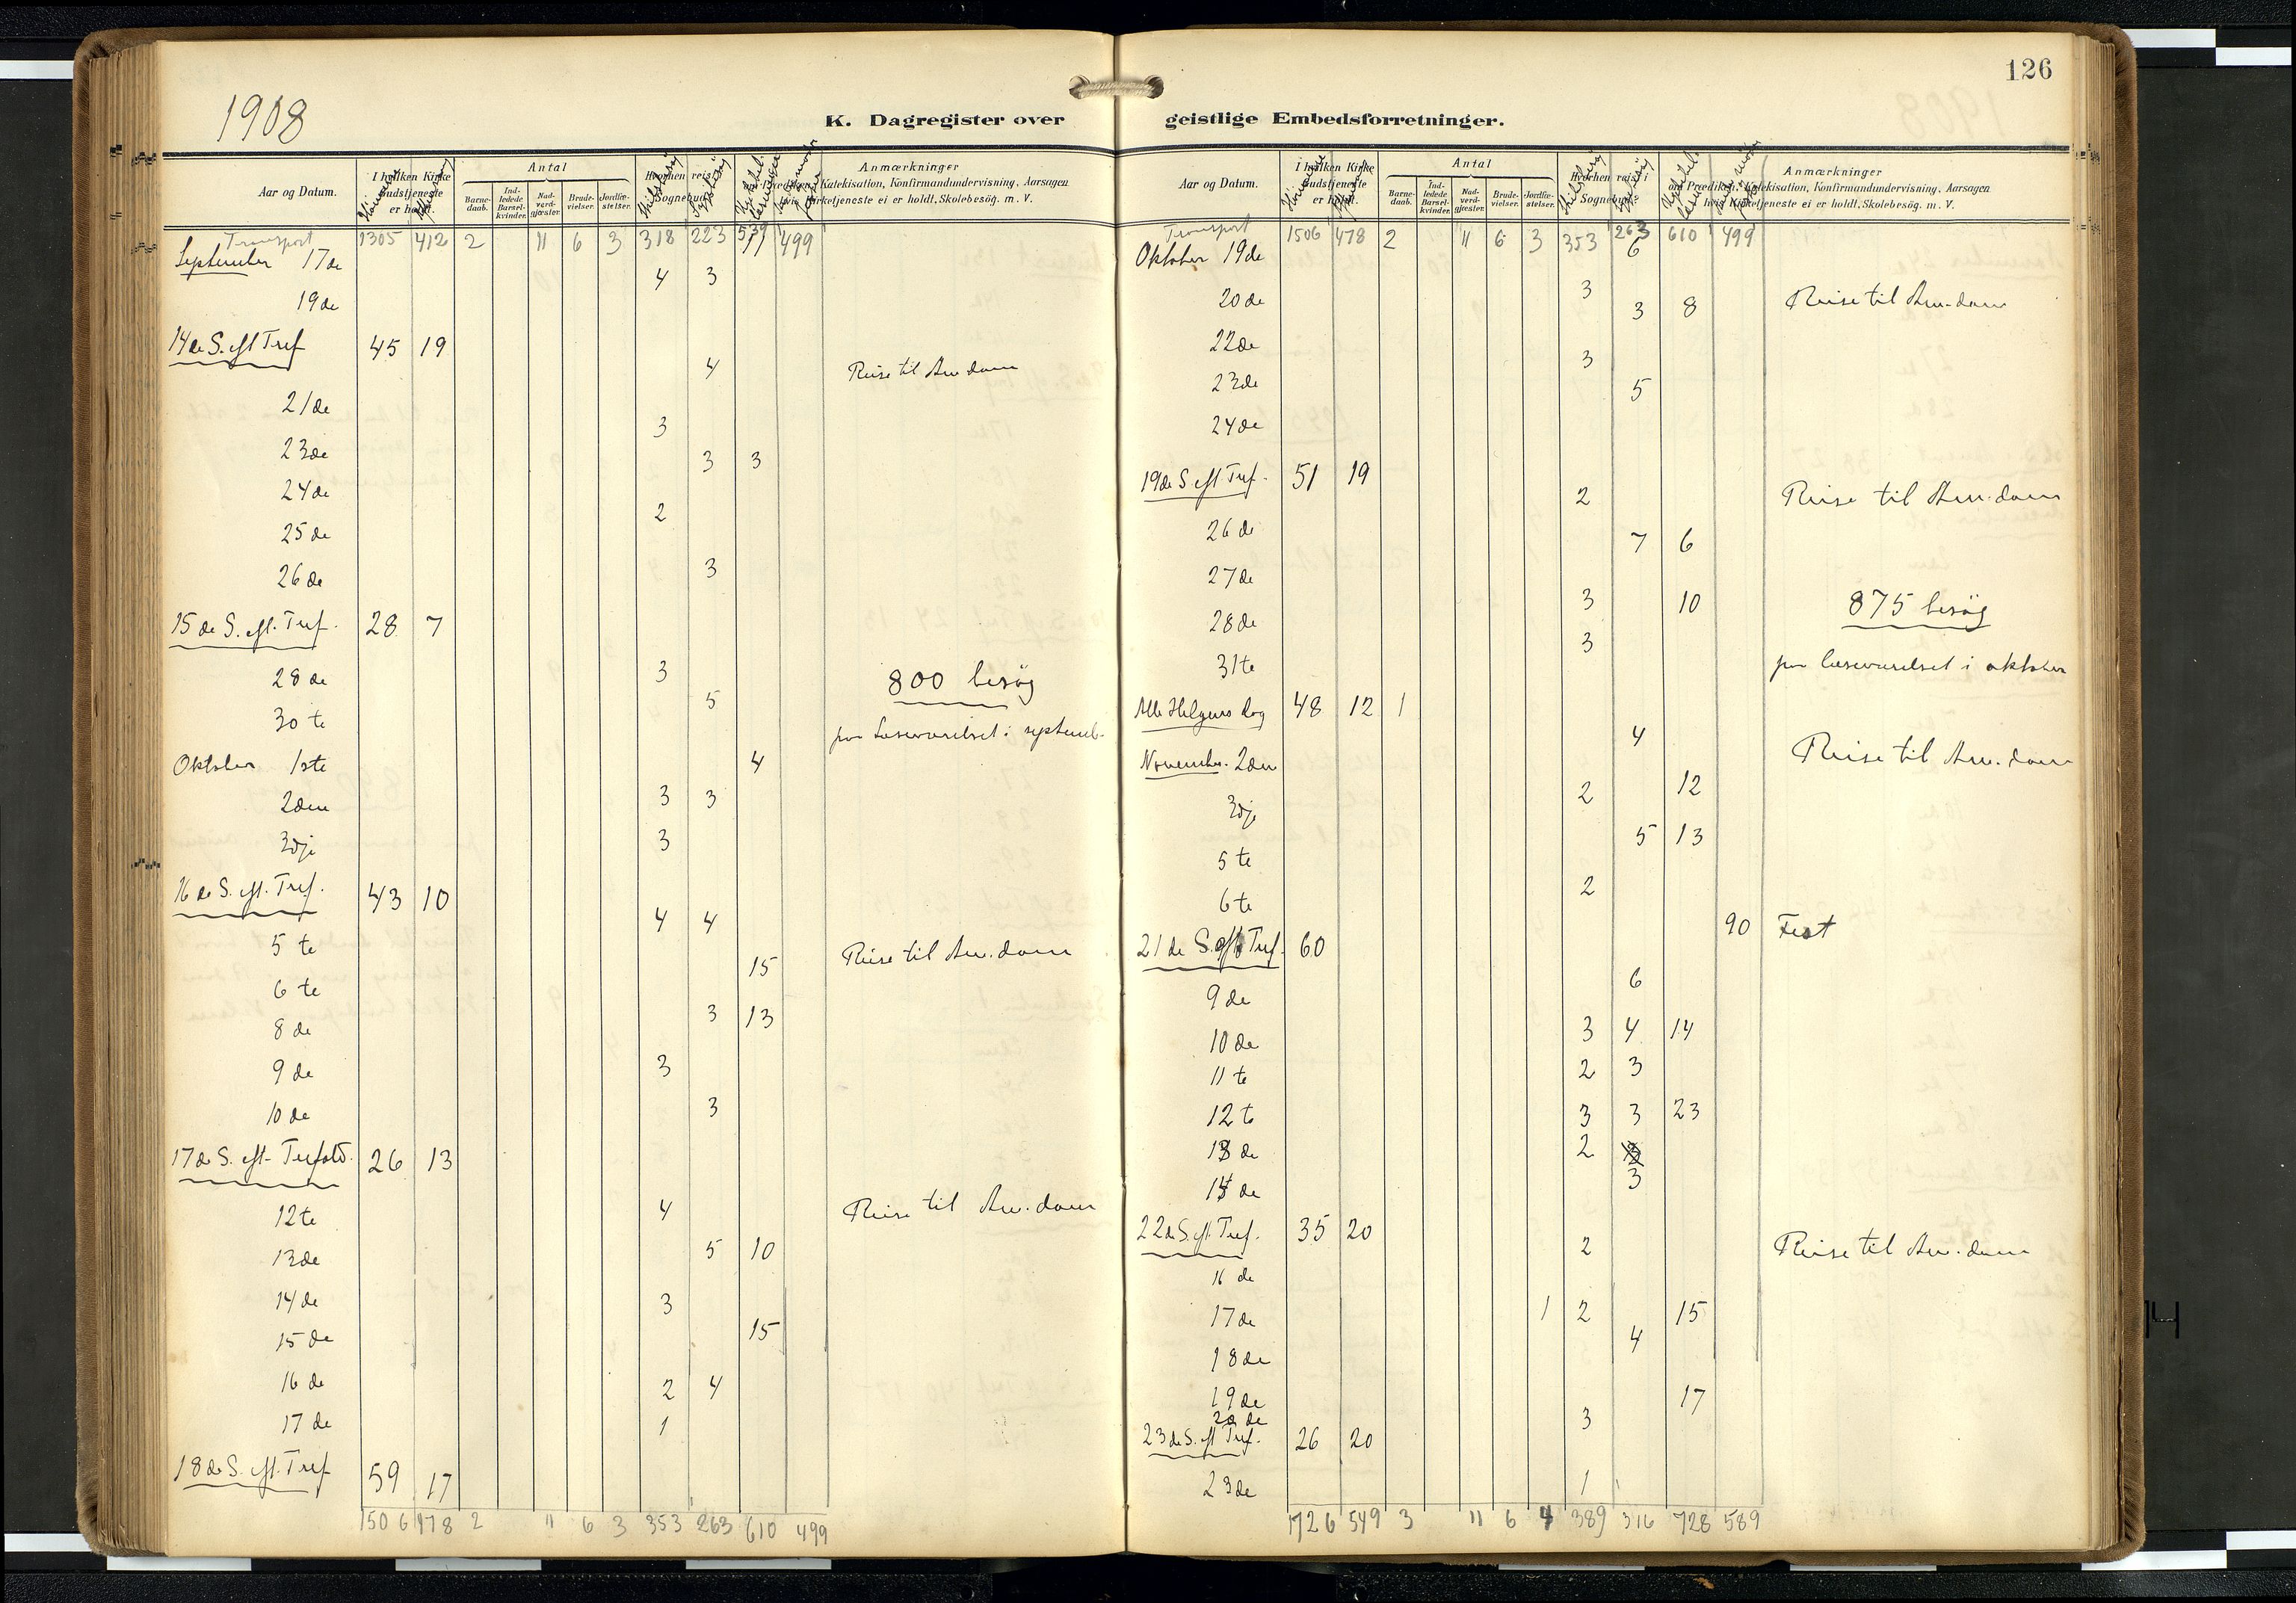 1908
126
K. Dagregister over geistlige Embedsforretninger.
Aar og Datum. I hvilken Kirke Gudstjeneste er holdt. Antal Anmærkninger
Barne-daab. Ind-ledede Barsel-kvinder. Nad-verd-gjæster. Brude-vielser. Jordfæ-stelser. Katekisation, Konfirmandundervisning, Aarsagen
hvis Kirketjeneste ei er holdt, Skolebesøg. m. V.
Transport 1305 412 2 11 6 3 318 223 539 499
September 17de 4 3
19de
14de S. eft Tref 45 19
4 Reise til Am dam
21de 3
23de 3 3
24de 2
25de
26de 3
15de S. eft. Tref. 28 7
28de 3 800 besøg
30te 5 paa Læseværelset i septemb.
Oktober 1ste 4
2den 3 3
3dje 3
16de S. eft. Tref. 43 10
4 4
5te 15 Reise til Am. dam
6te
8de 3 13
9de 3
10de 3
17de S. eft. Trefold. 26 13
12te 4 Reise til Am. dam
13de 5 10
14de 3
15de 15
16de 2 4
17de 1
18de S. eft. Tref 59 17
1506 478 2 11 6 3 353 263 610 499
Aar og Datum. I hvilken Kirke Gudstjeneste er holdt. Antal Anmærkninger
Barne-daab. Ind-ledede Barsel-kvinder. Nad-verd-gjæster. Brude-vielser. Jordfæ-stelser. om Prædiken, Katekisation, Konfirmandundervisning, Aarsagen
hvis Kirketjeneste ei er holdt, Skolebesøg. m. V.
Transport 1506 478 2 11 6 3 353 263 610 499
Oktober 19de 6
20de 3 3 8 Reise til Am. dam
22de 3
23de 5
24de
19de S. eft Tref. 51 19
2 Reise til Am. dam
26de 7 6
27de
3 10 875 besøg
28de 3
31te paa læseværelset i oktober
Alle Helgens dag 48 12 1
4
November. 2den Reise til Am. dam
2 12
3dje 5 13
5te
2
6te
90 Fest
21de S. eft Tref. 60
6
9de
3 4 14
10de
2 3
11te
12te 3 3 23
13de 2
14de 3
22de S. eft Tref. 35 20
2 Reise til Am. dam
16de
17de 1 2 15
4
18de
19de 17
20de 3
23de S. eft Tref. 26 20
23de 1
1726 549 3 11 6 4 389 316 728 589